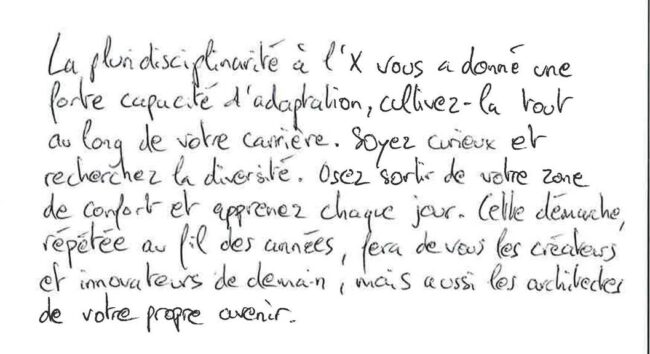 La pluridisciplinarité à l'X vous a donné une
forte capacité d'adaptation, cultivez-la tout
au long de votre carrière. Soyez curieux et
recherchez la diversité. Osez sortir de votre zone
de confort et apprenez chaque jour. Cette démarche,
répétée au fil des années, fera de vous les créateurs
et innovateurs de demain, mais aussi les architectes
de votre propre avenir.